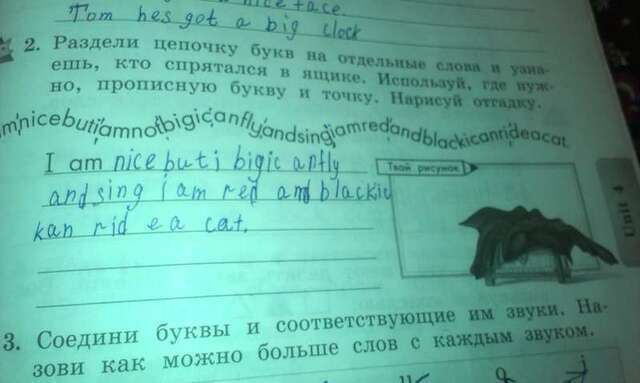 nice face
Tom hes got a big clock
2. Раздели цепочку букв на отдельные слова и узна-
ешь, кто спрятался в ящике. Используй, где нуж-
но, прописную букву и точку. Нарисуй отгадку.
mnicebutiamnotbigicanflyandsingiamredandblackicanrideacat.
I am nice but i bigic anfly
and sing i am red and blackic
kan rid e a cat.
Твой рисунок
Unit 4
3. Соедини буквы и соответствующие им звуки. На-
зови как можно больше слов с каждым звуком.